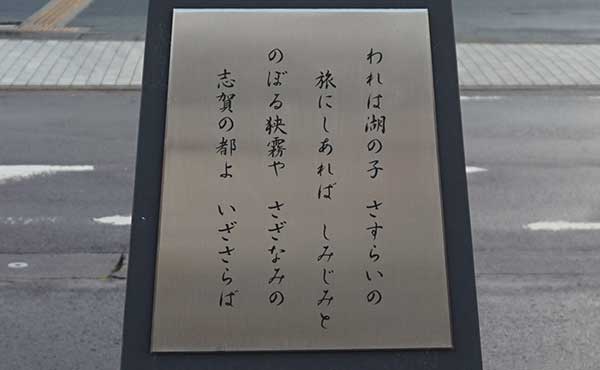 われは湖の子　さすらいの
旅にしあれば　しみじみと
のぼる狭霧や　さざなみの
志賀の都よ　いざさらば